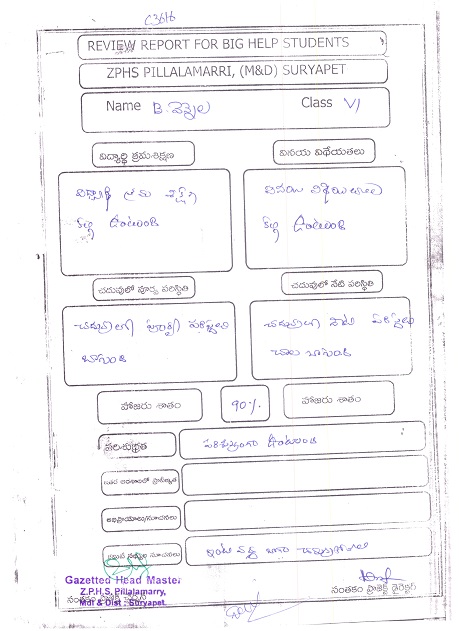 C3616
REVIEW REPORT FOR BIG HELP STUDENTS
ZPHS PILLALAMARRI, (M&D) SURYAPET
Name B. వెన్నెల Class VI
విద్యార్థి క్రమశిక్షణ
వినయ విధేయతలు
విద్యార్థి క్రమ శిక్షణ
కల్గి ఉంటుంది
కల్గి ఉంటుంది
చదువులో పూర్వ పరిస్థితి
చదువులో నేటి పరిస్థితి
చదువులో పరిస్థితి
బాగుంది
చదువులో నేటి పరిస్థితి
చాలా బాగుంది
హాజరు శాతం 90% హాజరు శాతం
పరిశుభ్రత పరిశుభ్రంగా ఉంటుంది
ఇతర అంశాలలో ప్రావీణ్యత
అభిప్రాయాలు/సూచనలు
సూచనలు ఇంటి వద్ద బాగా
Gazetted Head Master
Z.P.H.S, Pillalamarry,
Mdl & Dist : Suryapet.
సంతకం ప్రాజెక్ట్ డైరెక్టర్